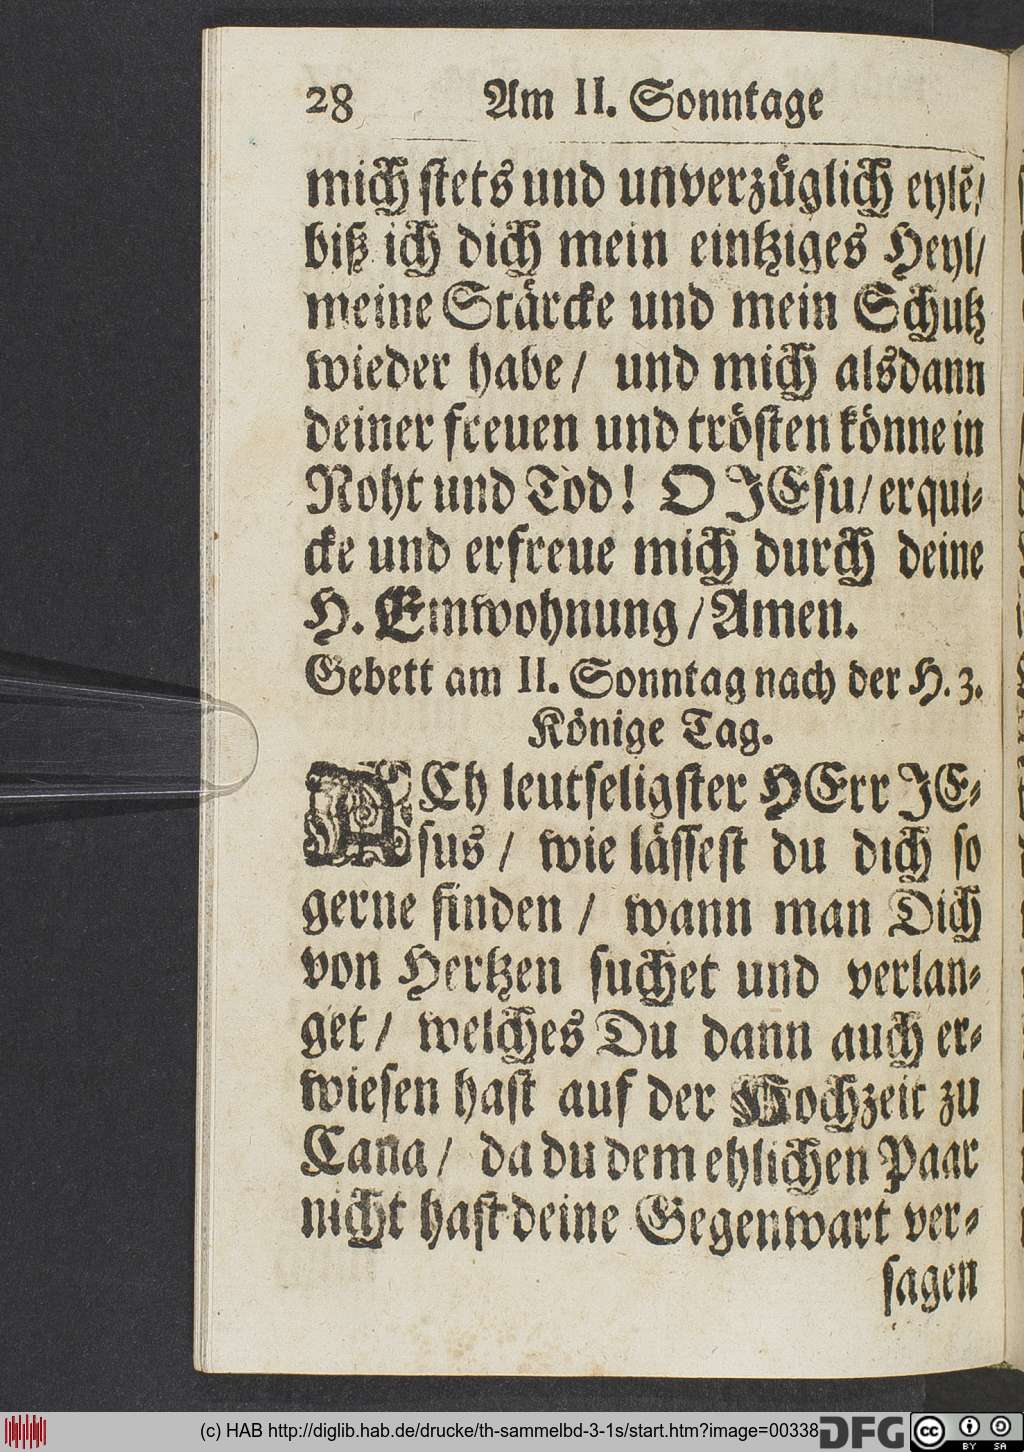 28 Am II. Sonntage
mich stets und unverzüglich eylẽ/
biß ich dich mein eintziges Heyl/
meine Stärcke und mein Schutz
wieder habe/ und mich alsdann
deiner freuen und trösten könne in
Noht und Tod! O JEsu/ erqui-
cke und erfreue mich durch deine
H. Einwohnung/ Amen.
Gebett am II. Sonntag nach der H. 3.
Könige Tag.
ACh leutseligster HErr JE-
sus/ wie lässest du dich so
gerne finden/ wann man Dich
von Hertzen suchet und verlan-
get/ welches Du dann auch er-
wiesen hast auf der Hochzeit zu
Cana/ da du dem ehlichen Paar
nicht hast deine Gegenwart ver-
sagen
(c) HAB http://diglib.hab.de/drucke/th-sammelbd-3-1s/start.htm?image=00338
DFG
cc
BY SA